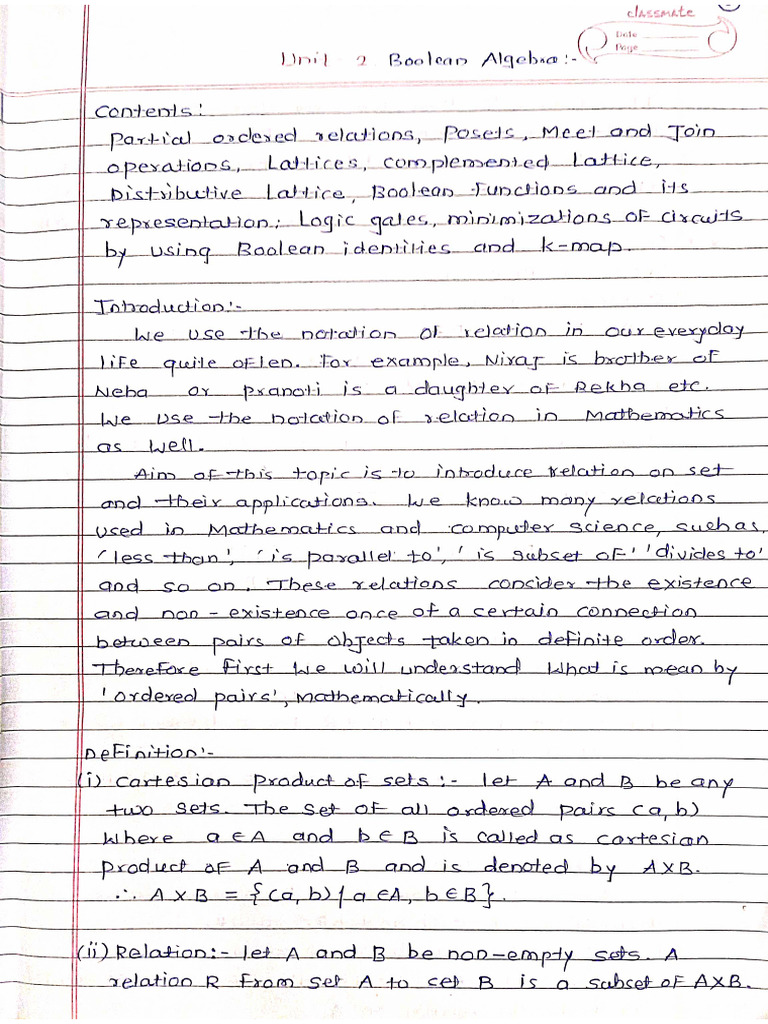 classmate
Date
Page
Unit 2 Boolean Algebra:-
Contents:
Partial ordered relations, Posets, Meet and Join
operations, Lattices, complemented Lattice,
Distributive Lattice, Boolean functions and its
representation: Logic gates, minimizations of circuits
by using Boolean identities and k-map.
Introduction:-
We use the notation of relation in our everyday
life quite often. For example, Niraj is brother of
Neha or Pranoti is a daughter of Rekha etc.
We use the notation of relation in Mathematics
as well.
Aim of this topic is to introduce relation on set
and their applications. We know many relations
used in Mathematics and computer science, such as
'less than', 'is parallel to', 'is subset of' 'divides to'
and so on. These relations consider the existence
and non-existence once of a certain connection
between pairs of objects taken in definite order.
Therefore first we will understand what is mean by
'ordered pairs', mathematically.
Definition:-
(i) Cartesian Product of sets:- let A and B be any
two sets. The set of all ordered pairs (a, b)
where a ∈ A and b ∈ B is called as cartesian
Product of A and B and is denoted by A×B.
∴ A × B = {(a, b) / a ∈ A, b ∈ B}.
(ii) Relation:- let A and B be non-empty sets. A
relation R from set A to set B is a subset of A×B.